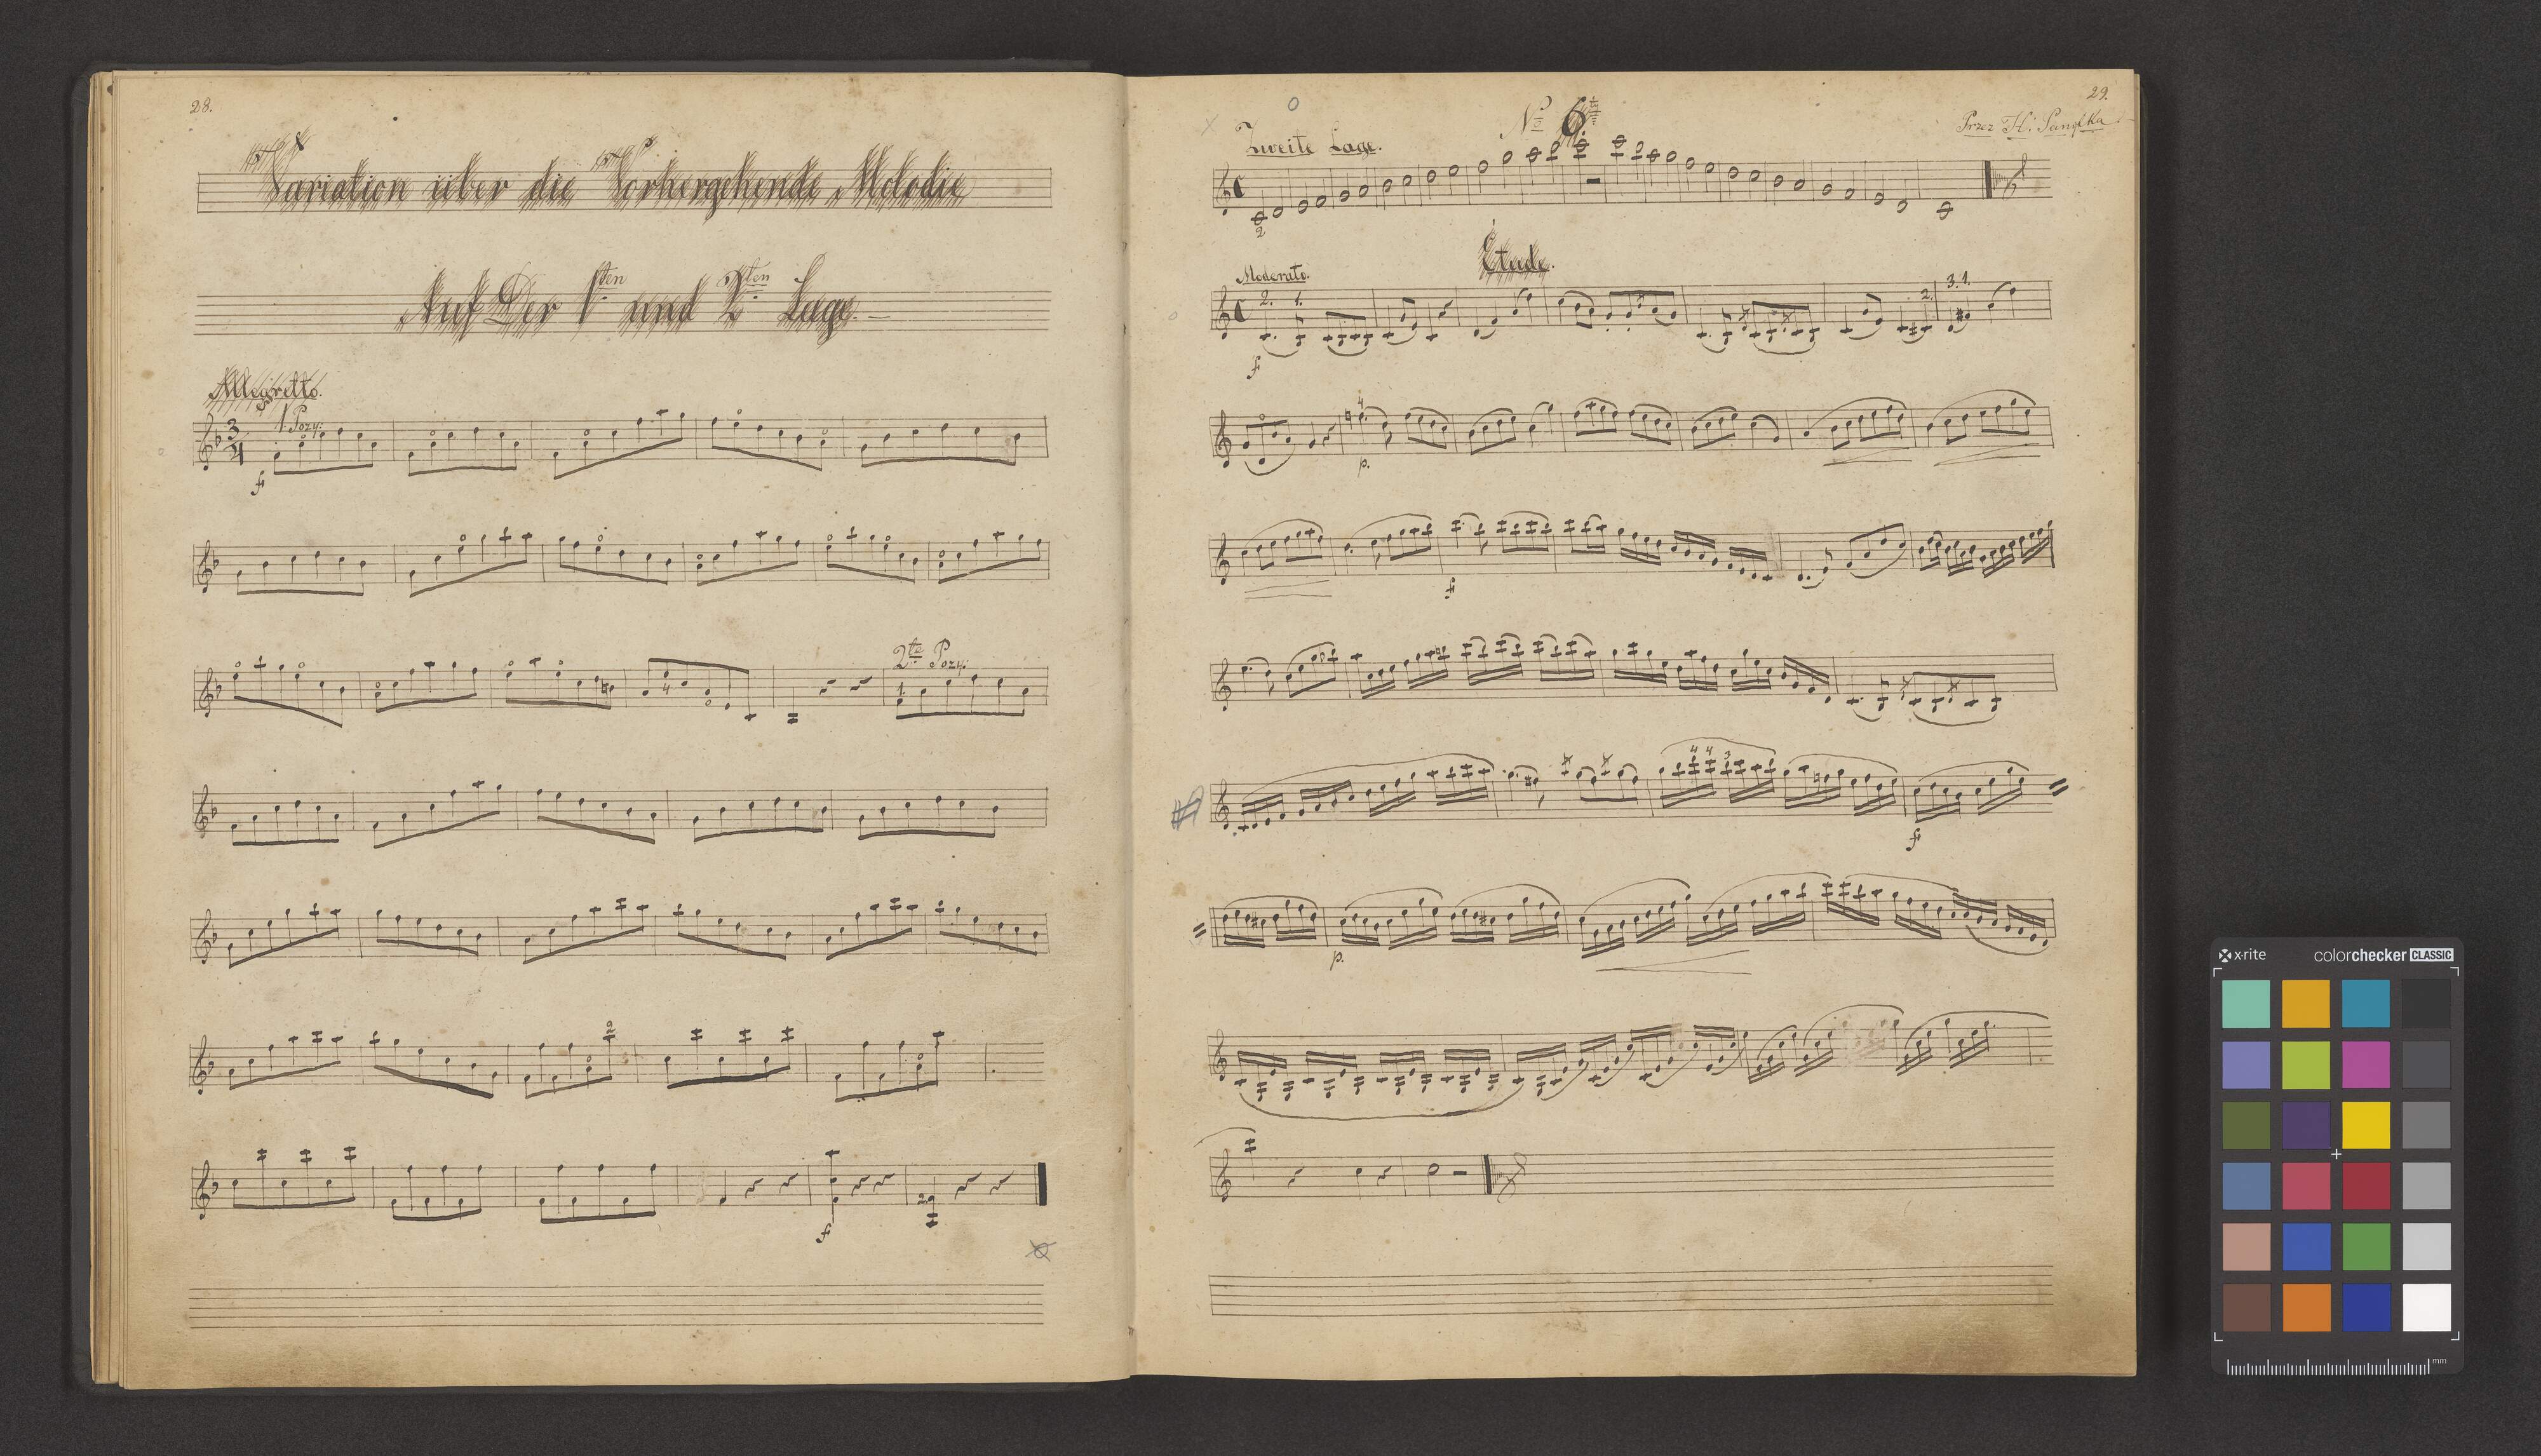 28.
Variation über die Vorhergehende Melodie
Auf Der 1ten und 2ten Lage.
Allegretto.
1 Pozy:
3
4
f
2te Pozy:
4
1.
2
f
29.
No 6ty
Przez H:
Zweite Lage.
2
Etude.
Moderato.
2. 1.
2.
3. 1.
f
4
p.
f
4 4 3
f
p.
x·rite
colorchecker CLASSIC
mm